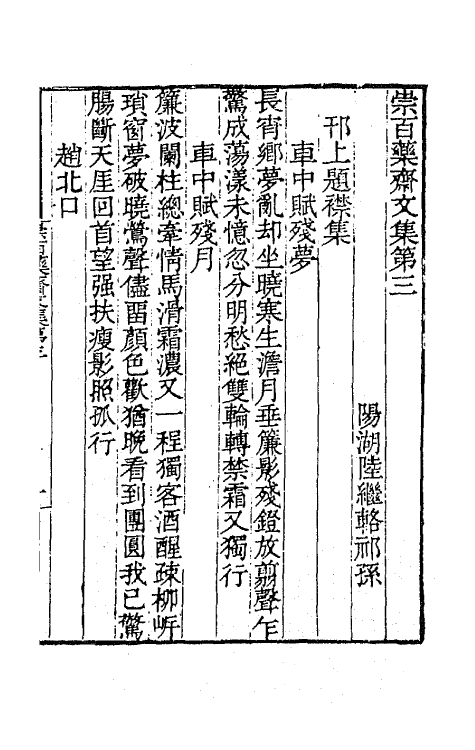 崇百藥齋文集第三
陽湖陸繼輅祁孫
邗上題襟集
車中賦殘夢
長宵鄉夢亂却坐曉寒生澹月垂簾影殘鐙放剪聲乍
驚成蕩漾未憶忽分明愁絕雙輪轉禁霜又獨行
車中賦殘月
簾波闌柱總牽情馬滑霜濃又一程獨客酒醒疎柳岍
瑣窗夢破曉鶯聲儘畱顏色歡猶晚看到團圓我已驚
腸斷天厓回首望强扶瘦影照孤行
趙北口